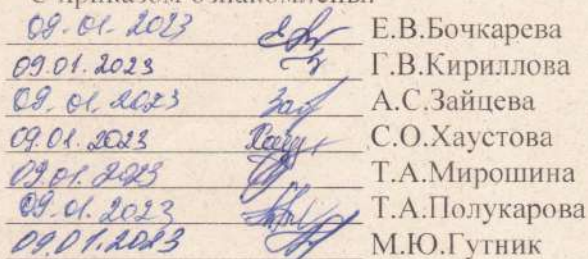 С приказом ознакомлены:
09.01.2023 Е.В.Бочкарева
09.01.2023 Г.В.Кириллова
09.01.2023 А.С.Зайцева
09.01.2023 С.О.Хаустова
09.01.2023 Т.А.Мирошина
09.01.2023 Т.А.Полукарова
09.01.2023 М.Ю.Гутник